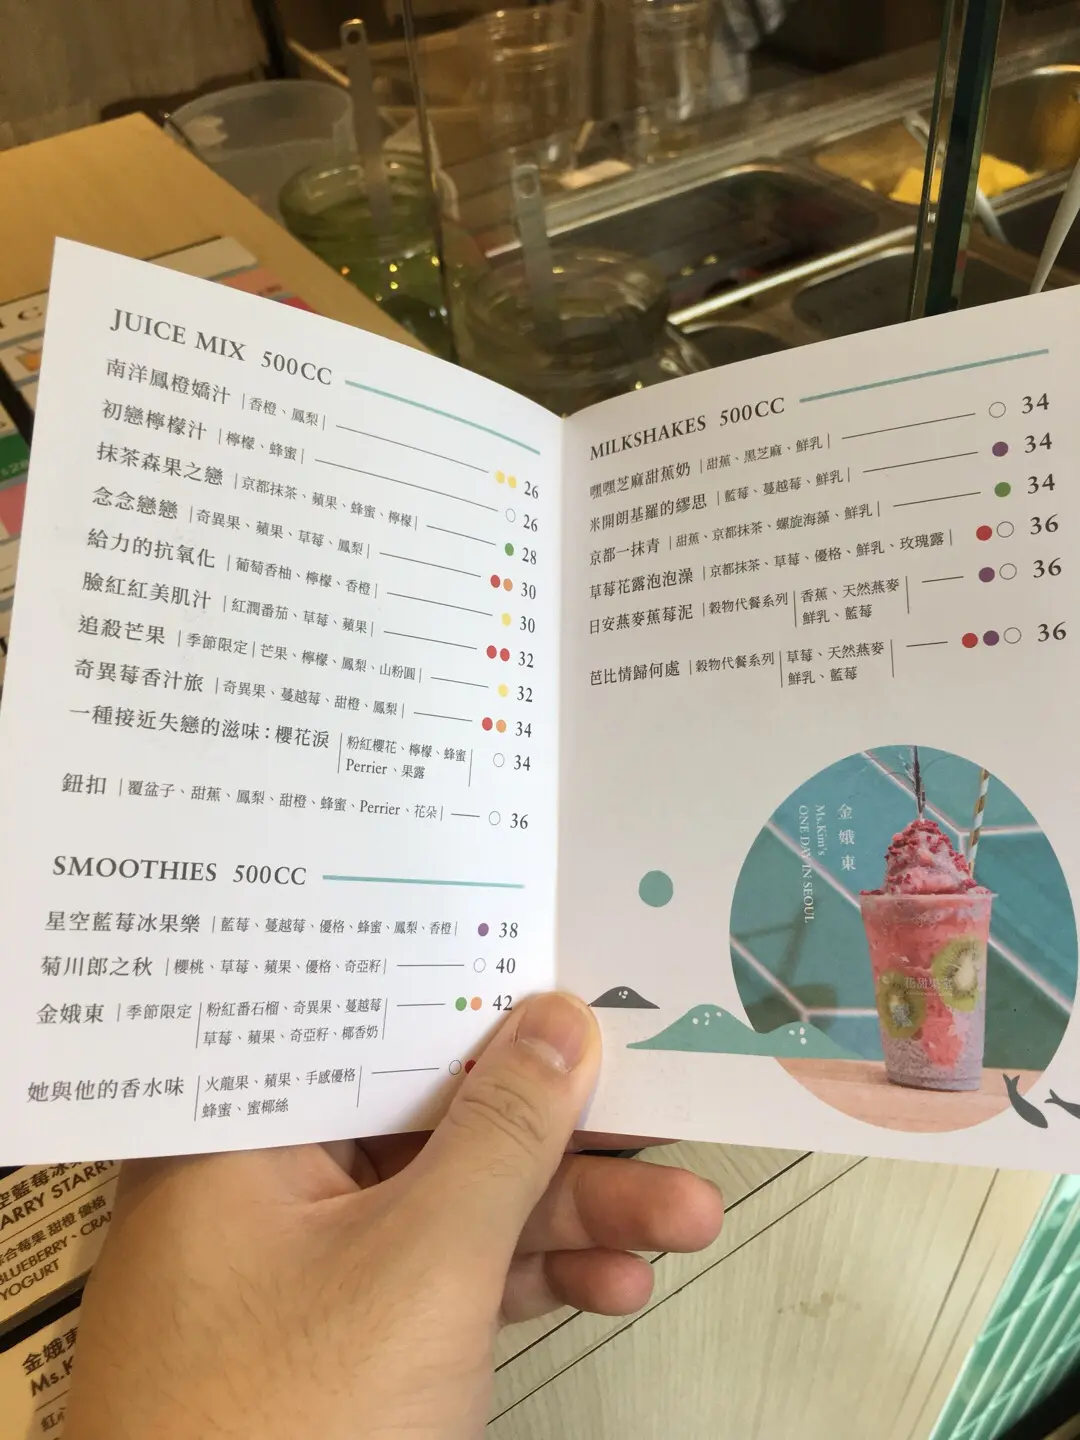 JUICE MIX 500CC
南洋鳳橙嬌汁 |香橙、鳳梨| 26
初戀檸檬汁 |檸檬、蜂蜜| 26
抹茶森果之戀 |京都抹茶、蘋果、蜂蜜、檸檬| 28
念念戀戀 |奇異果、蘋果、草莓、鳳梨| 30
給力的抗氧化 |葡萄香柚、檸檬、香橙| 30
臉紅紅美肌汁 |紅潤番茄、草莓、蘋果| 32
追殺芒果 |季節限定|芒果、檸檬、鳳梨、山粉圓| 32
奇異莓香汁旅 |奇異果、蔓越莓、甜橙、鳳梨| 34
一種接近失戀的滋味：櫻花淚 |粉紅櫻花、檸檬、蜂蜜 34
Perrier、果露
鈕扣 |覆盆子、甜蕉、鳳梨、甜橙、蜂蜜、Perrier、花朵| 36
SMOOTHIES 500CC
星空藍莓冰果樂 |藍莓、蔓越莓、優格、蜂蜜、鳳梨、香橙| 38
菊川郎之秋 |櫻桃、草莓、蘋果、優格、奇亞籽| 40
金娥東 |季節限定|粉紅番石榴、奇異果、蔓越莓 42
草莓、蘋果、奇亞籽、椰香奶
她與他的香水味 |火龍果、蘋果、手感優格
蜂蜜、蜜椰絲
MILKSHAKES 500CC
嘿嘿芝麻甜蕉奶 |甜蕉、黑芝麻、鮮乳| 34
米開朗基羅的繆思 |藍莓、蔓越莓、鮮乳| 34
京都一抹青 |甜蕉、京都抹茶、螺旋海藻、鮮乳| 34
草莓花露泡泡澡 |京都抹茶、草莓、優格、鮮乳、玫瑰露| 36
日安燕麥蕉莓泥 |穀物代餐系列|香蕉、天然燕麥 36
鮮乳、藍莓
芭比情歸何處 |穀物代餐系列|草莓、天然燕麥 36
鮮乳、藍莓
金娥東
Ms.Kim's
ONE DAY IN SEOUL
花甜果室
空藍莓冰
ARRY STARRY
綜合莓果 甜橙 優格
BLUEBERRY、CRA
YOGURT
金娥東
Ms.K